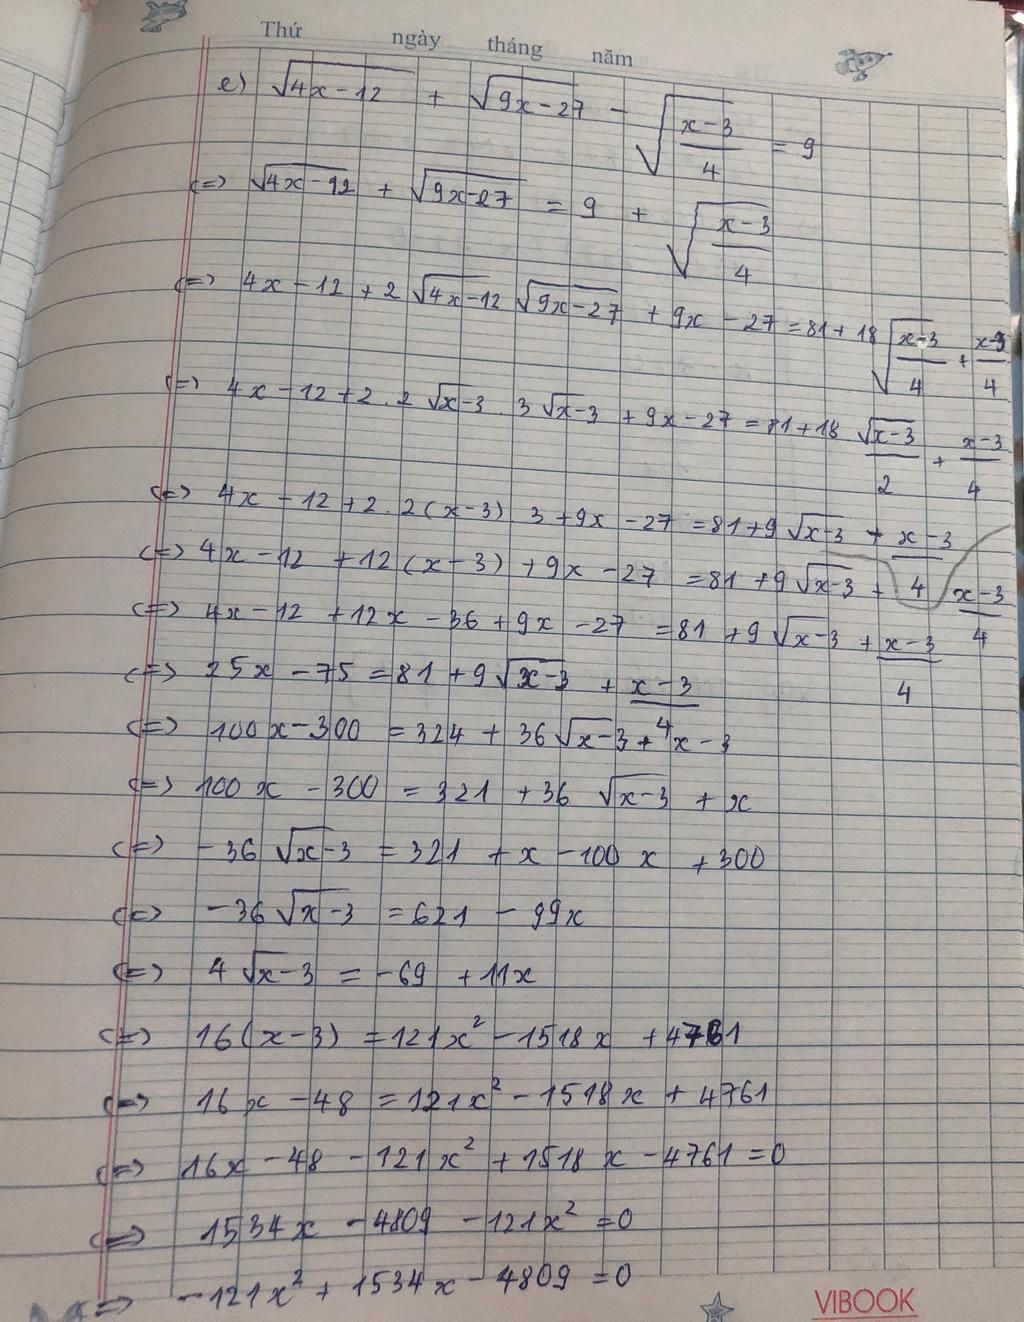 Thứ ngày tháng năm
e) √(4x-12) + √(9x-27) - √((x-3)/4) = 9
<=> √(4x-92) + √(9x-27) = 9 + √((x-3)/4)
<=> 4x-12+2 √(4x-12) √(9x-27) + 9x-27 = 81+18 √((x-3)/4) + (x-3)/4
<=> 4x-12+2.2 √(x-3) . 3 √(x-3) + 9x-27 = 81+18 √(x-3)/2 + (x-3)/4
<=> 4x-12+2.2(x-3) 3 +9x-27 = 81+9 √(x-3) + (x-3)/4
<=> 4x-12 +12(x-3) +9x-27 = 81+9 √(x-3) + (x-3)/4
<=> 4x-12 +12x-36+9x-27 = 81 +9 √(x-3) + (x-3)/4
<=> 25x-75 = 81+9 √(x-3) + (x-3)/4
<=> 100x-300 = 324 + 36 √(x-3) + x-3
<=> 100x - 300 = 321 + 36 √(x-3) + x
<=> -36 √(x-3) = 321 + x - 100x + 300
<=> -36 √(x-3) = 621 - 99x
<=> 4 √(x-3) = -69 + 11x
<=> 16(x-3) = 121x² - 1518x + 4761
<=> 16x - 48 = 121x² - 1518x + 4761
<=> 16x - 48 - 121x² + 1518x - 4761 = 0
<=> 1534x - 4809 - 121x² = 0
<=> -121x² + 1534x - 4809 = 0
VIBOOK